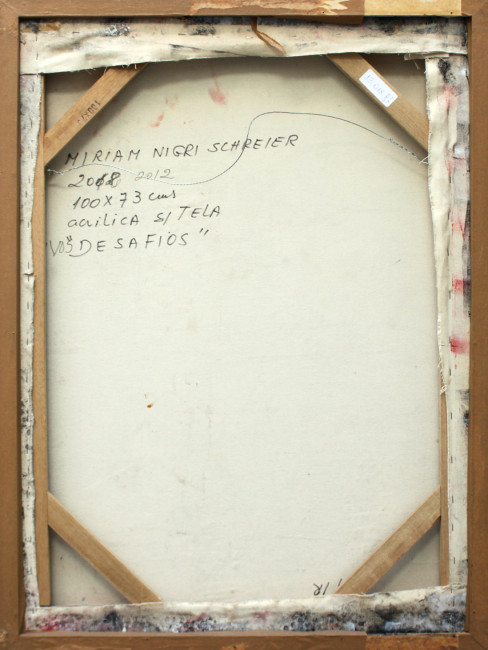 MIRIAM NIGRI SCHREIER
2012
100 X 73 cms
acrilica S/ TELA
"DESAFIOS"